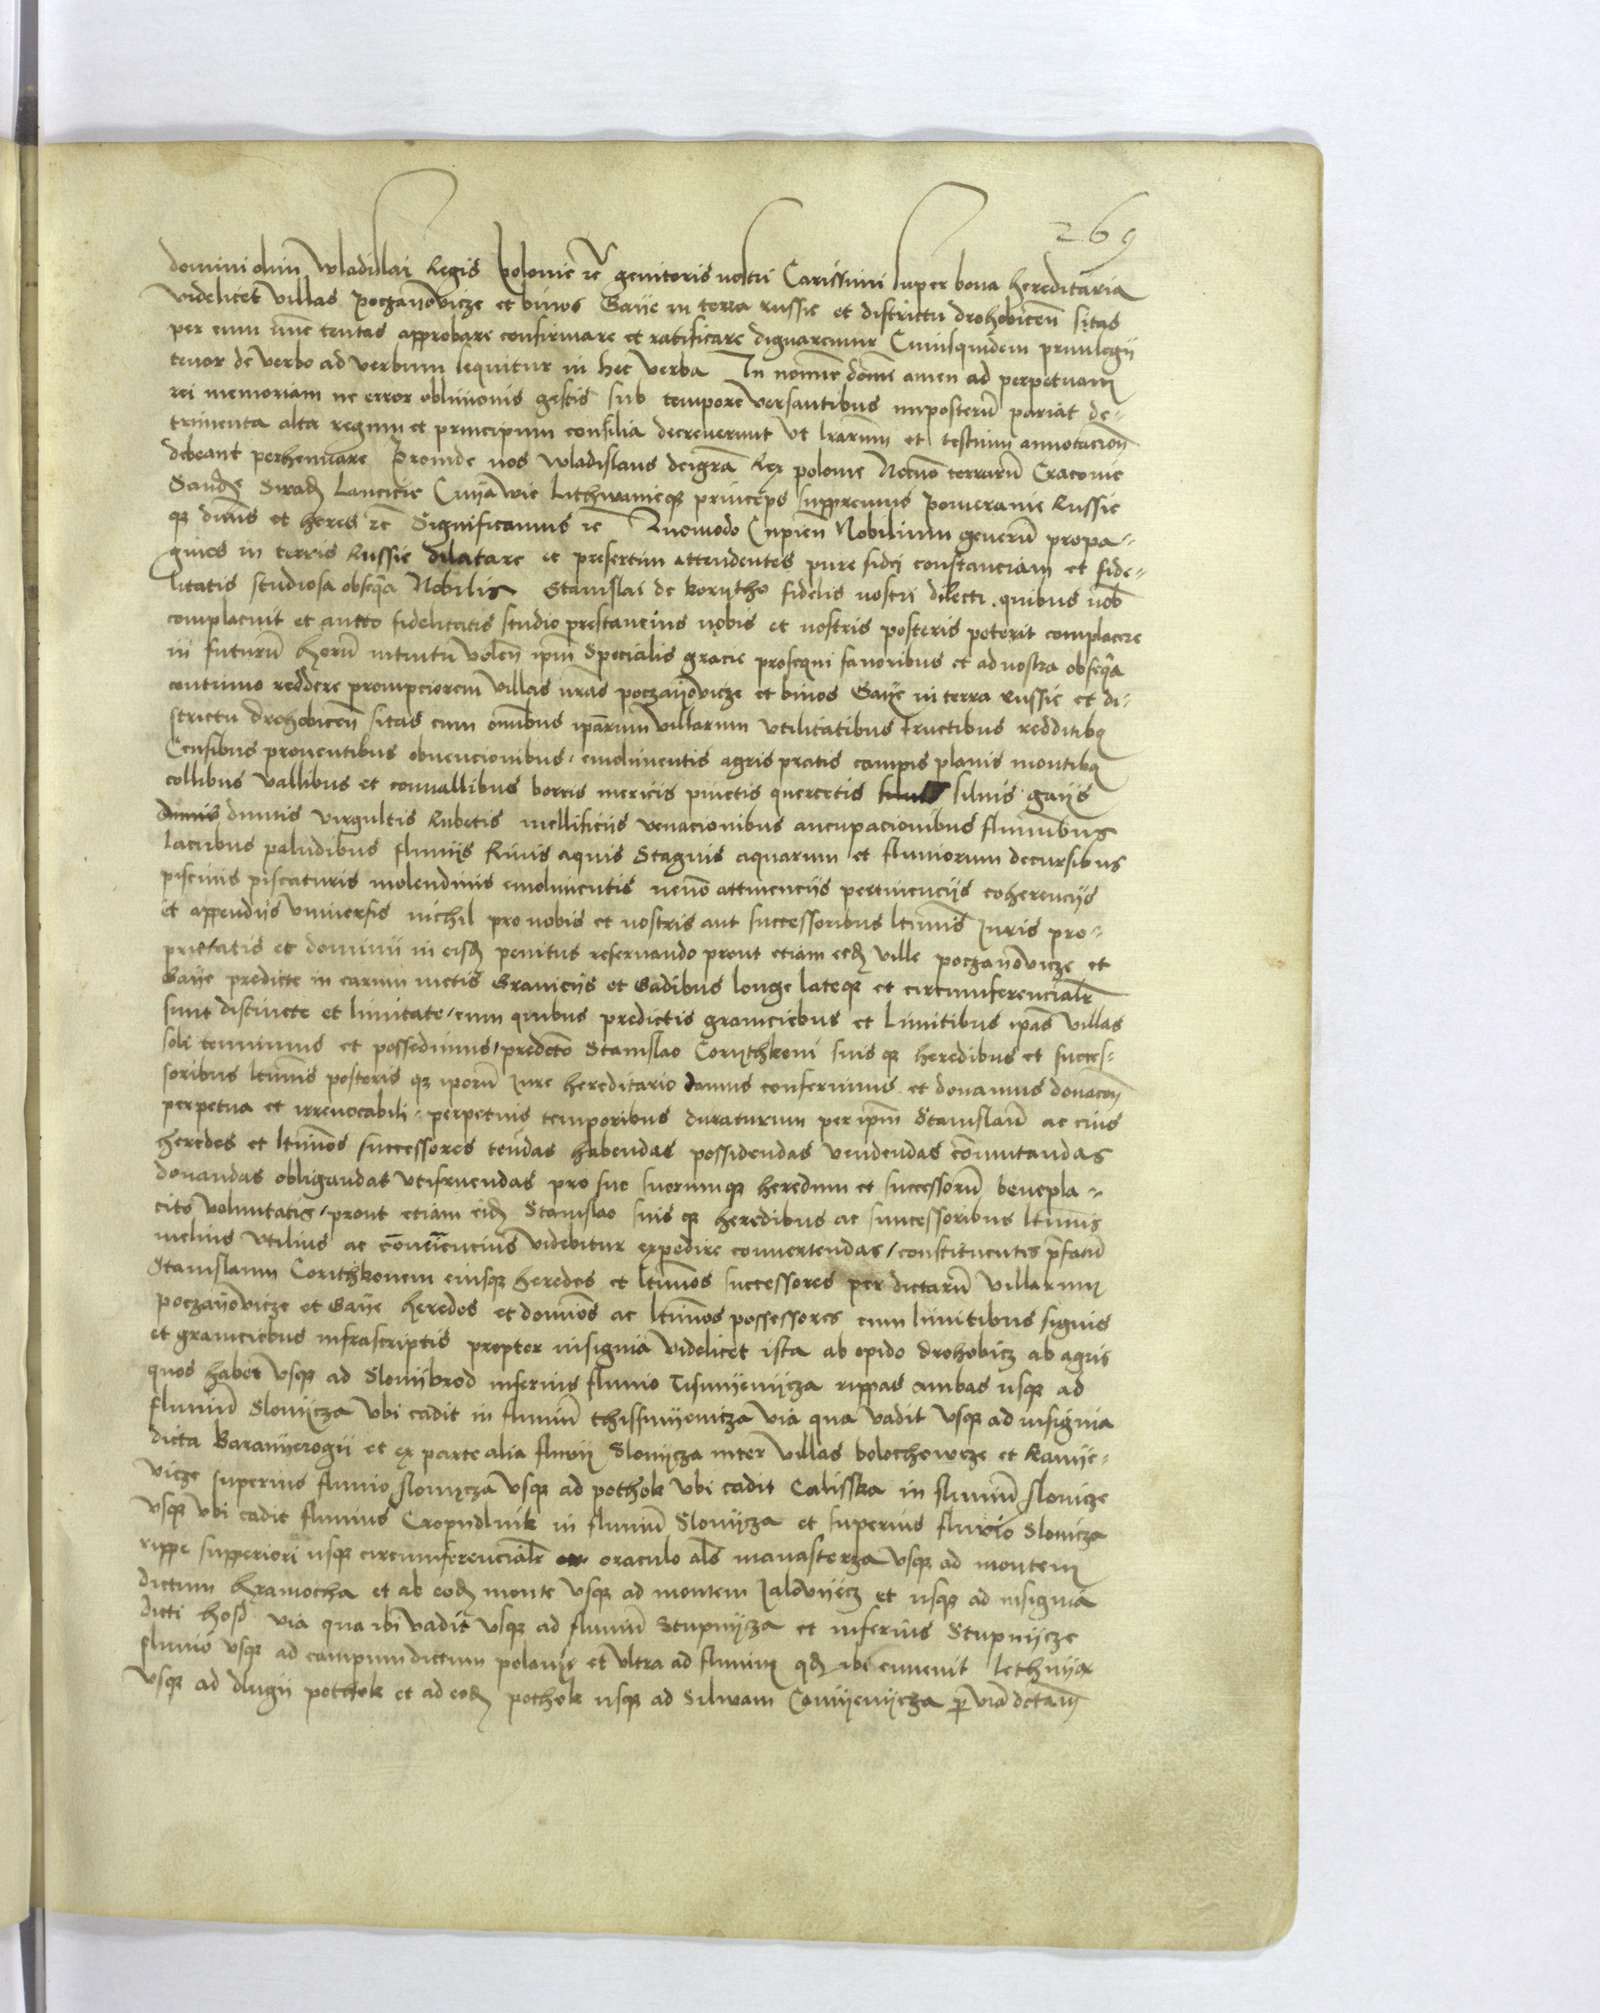 269
domini olim Wladislai Regis Polonie rc genitoris nostri Carissimi super bona hereditaria
videlicet villas poczayovicze et binos Gaye in terra russie et districtu drohobicen sitas
per eum nunc tentas approbare confirmare et ratificare dignaremur Cuiusquidem privilegii
tenor de verbo ad verbum sequitur in hec verba In nomine domini amen ad perpetuam
rei memoriam ne error oblivionis gestis sub tempore versantibus imposterum pariat de-
trimenta alta regum et principum consilia decreverunt ut lrarum et testium annotacione
debeant perhennare Proinde nos wladislaus dei gra Rex polonie Necnon terrarum Cracovie
Sandomirie Siradie Lancicie Cuyawie Lithwanieque princeps suppremus Pomeranie Russie
que dominus et heres rc Significamus rc Quomodo Cupientes Nobilium generum propa-
gines in terris Russie dilatare et presertim attendentes pure fidei constanciam et fide-
litatis studiosa obsequia Nobilis Stanislai de korytho fidelis nostri dilecti quibus nobis
complacuit et aucto fidelitatis studio prestancius nobis et nostris posteris poterit complacere
in futurum Horum intuitu volentes ipm Specialis gracie prosequi favoribus et ad nostra obsequia
continuo reddere prompciorem villas nras poczayovicze et binos Gaye in terra Russie et di-
strictu drohobicen sitas cum omnibus iparum villarum utilitatibus fructibus redditibus
Censibus proventibus obvencionibus emolimentis agris pratis campis planis montibus
collibus vallibus et convallibus borris mericis pinetis quercetis silvis gayis
dumis dumis virgultis Rubetis mellificiis venacionibus aucupacionibus fluminibus
lacubus paludibus fluviis Rivis aquis Stagnis aquarum et fluviorum decursibus
piscinis piscaturis molendinis emolimentis necnon attinenciis pertinenciis coherenciis
et appendiis universis nichil pro nobis et nostris aut successoribus ltimis Juris pro-
prietatis et dominii in eisdem penitus reservando prout etiam eedem ville poczayovicze et
Gaye predicte in earum metis Graniciis et Gadibus longe lateque et circumferencialr
sunt distincte et limitate cum quibus predictis graniciebus et Limitibus ipas villas
soli tenuimus et possedimus predicto Stanislao Corythkoni suisque heredibus et succes-
soribus ltimis posteris que iporum Jure hereditario damus conferimus et donamus donacone
perpetua et irrevocabili perpetuis temporibus duraturum per ipm Stanislaum ac eius
heredes et ltimos successores tendas habendas possidendas vendendas comutandas
donandas obligandas utifruendas pro suo suorumque heredum et successorum benepla-
cito voluntatis prout etiam eidem Stanislao suisque heredibus ac successoribus ltimis
melius utilius ac conveniencius videbitur expedire convertendas constituentes prefatum
Stanislaum Corithkonem eiusque heredes et ltimos successores per dictarum villarum
poczayovicze et Gaye heredes et dominos ac ltimos possessores cum limitibus signis
et graniciebus infrascriptis propter insignia videlicet ista ab opido drohobicz ab agris
quos habet usque ad Slonybrod inferius fluvio Tismyenycza rippas ambas usque ad
fluvium Slonycza ubi cadit in fluvium thissmyenicza via qua vadit usque ad insignia
dicta Baranyerogy et ex parte alia fluvii Slonycza inter villas bolochowcze et Ranye-
vicze superius fluvio slonycza usque ad pothok ubi cadit Calisska in fluvium slonicze
usque ubi cadit fluvius Cropudlnik in fluvium Slonycza et superius fluvio Slonicza
rippe supperiori usque circumferencialr oraculo als manasterza usque ad montem
dictum Kramocha et ab eodem monte usque ad montem Jalovyecz et usque ad insignia
dicti host via qua ibi vadit usque ad fluvium Stupnycza et inferius Stupnycze
fluvio usque ad campum dictum polanye et ultra ad fluvium qd ibi evvenit lethnya
usque ad dlugy pothok et ad eodem pothok usque ad Silwam Camyenycza per via dictam